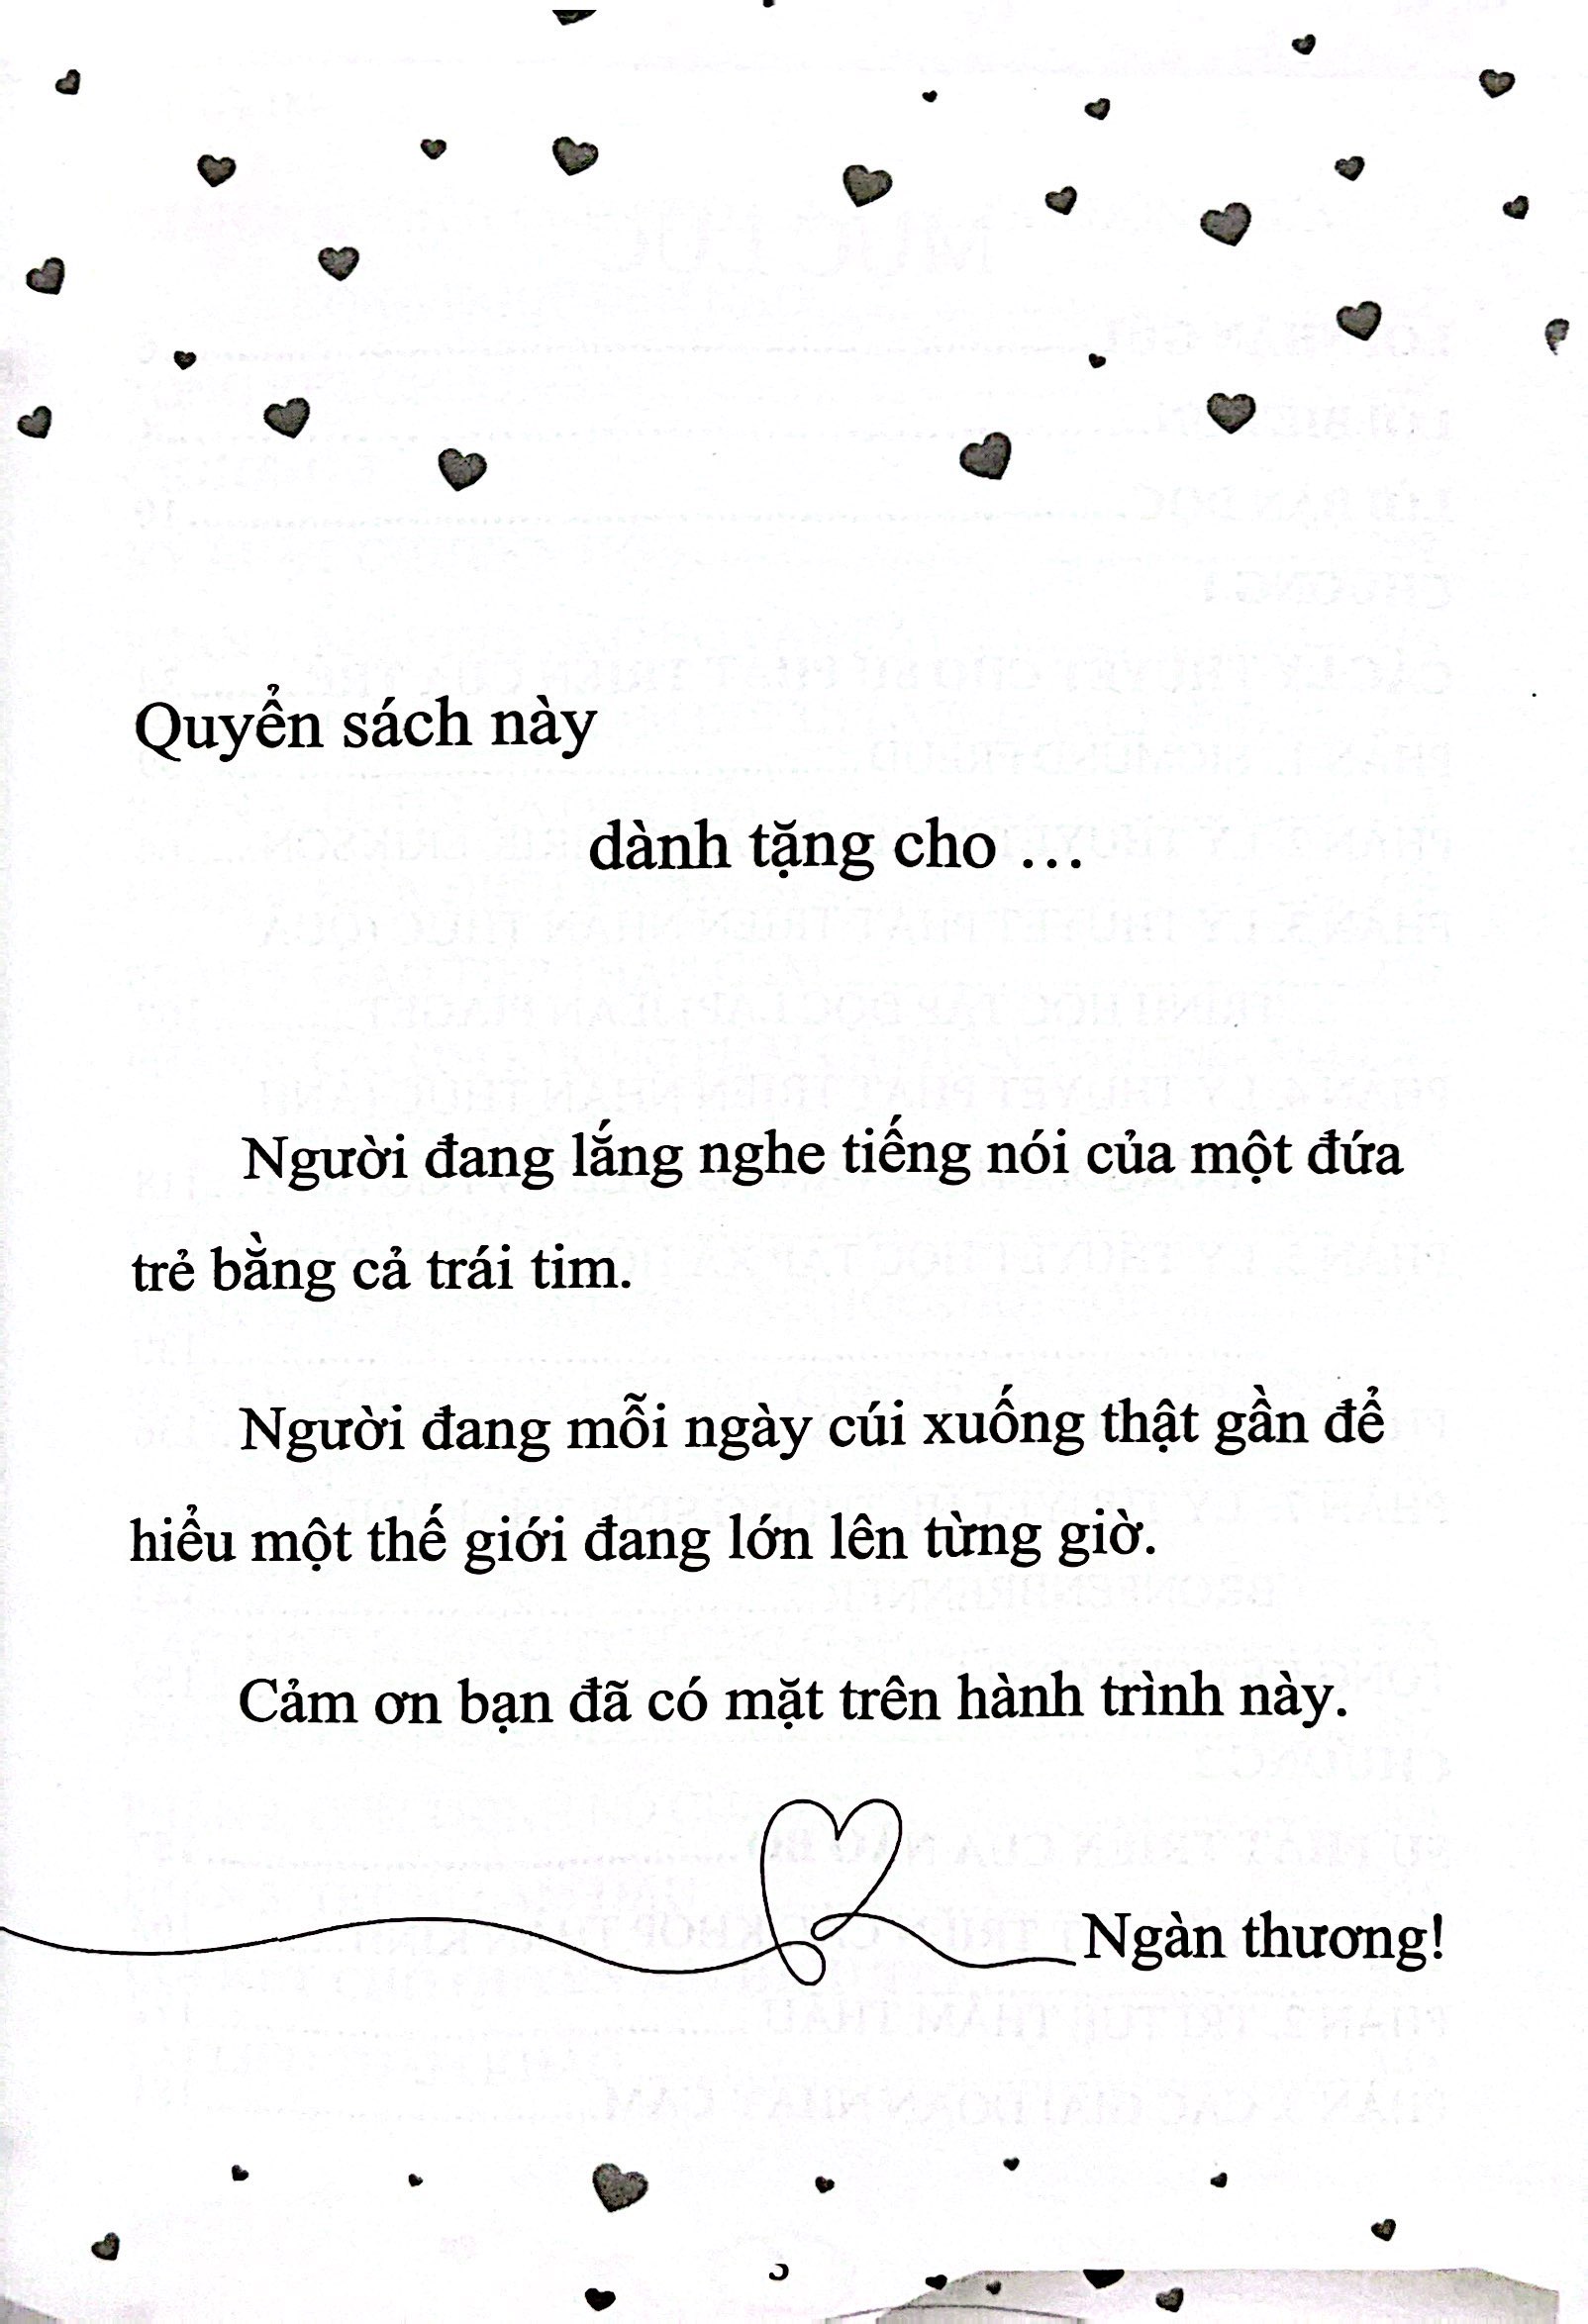 Quyển sách này
dành tặng cho ...
Người đang lắng nghe tiếng nói của một đứa
trẻ bằng cả trái tim.
Người đang mỗi ngày cúi xuống thật gần để
hiểu một thế giới đang lớn lên từng giờ.
Cảm ơn bạn đã có mặt trên hành trình này.
Ngàn thương!